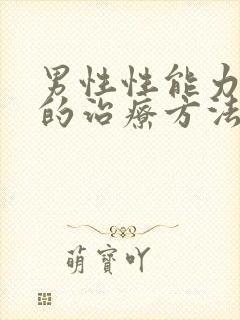 男性性能力
的治療方法
萌寶吖